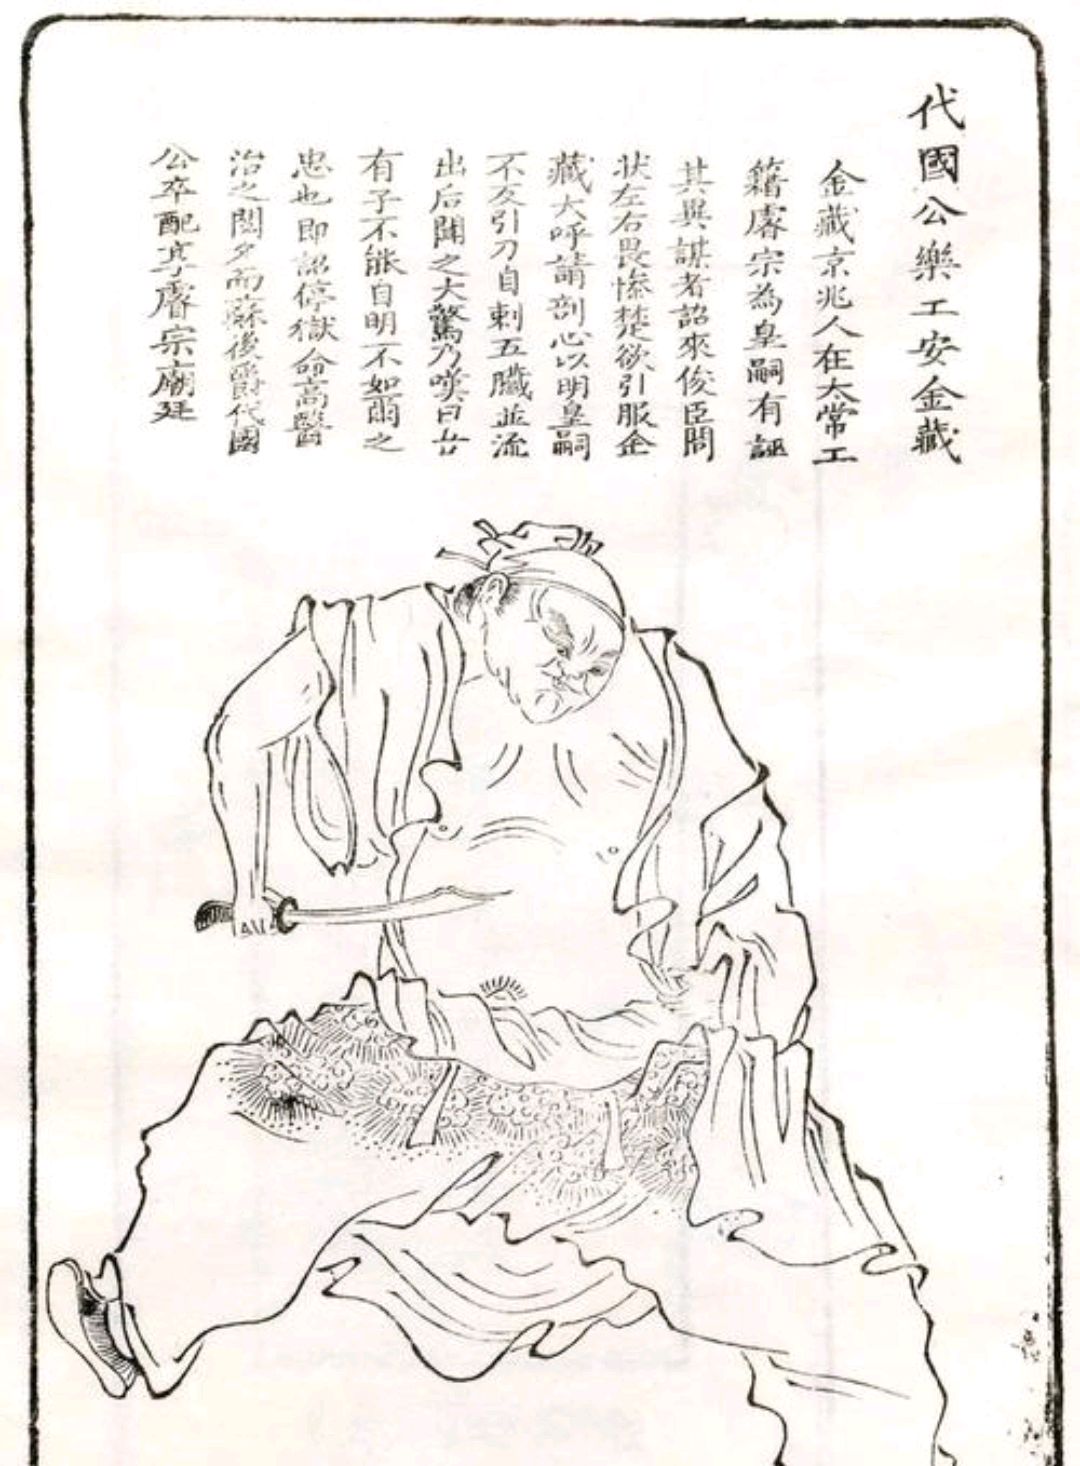 代國公樂工安金藏
金藏京兆人在太常工
籍睿宗為皇嗣有誣
其異謀者詔來俊臣問
状左右畏慘楚欲引服金
藏大呼請剖心以明皇嗣
不反引刀自剌五臟並流
出后聞之大驚乃嘆曰
有子不能自明不如爾之
忠也即詔停獄命高醫
治之閱夕而蘇後爵代國
公卒配享睿宗廟廷